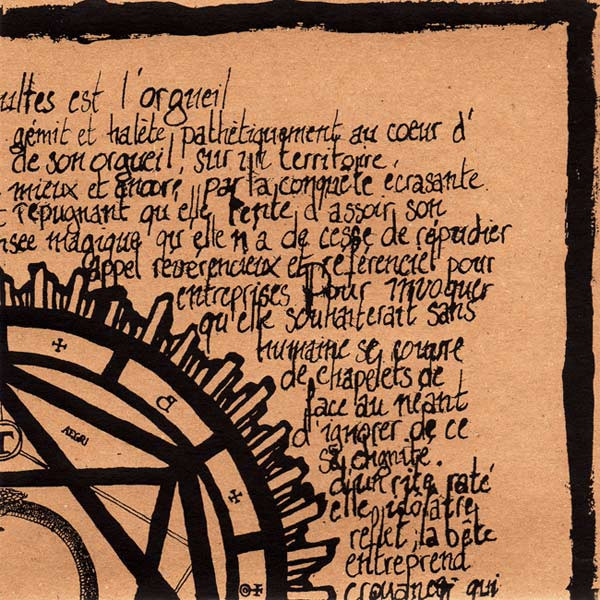 ultes est l'orgueil
gémit et halète pathétiquement au coeur d'
de son orgueil, sur un territoire,
mieux et encore, par la conquête écrasante.
répugnant qu'elle tente d'assoir son
nsée magique qu'elle n'a de cesse de répudier
appel révérencieux et référenciel pour
entreprises. Pour invoquer
qu'elle souhaiterait sans
humaine se couvre
de chapelets de
face au néant
d'ignorer de ce
sa dignité.
d'un rite raté
elle idolâtre
reflet, la bête
entreprend
croyances qui
AEGRI